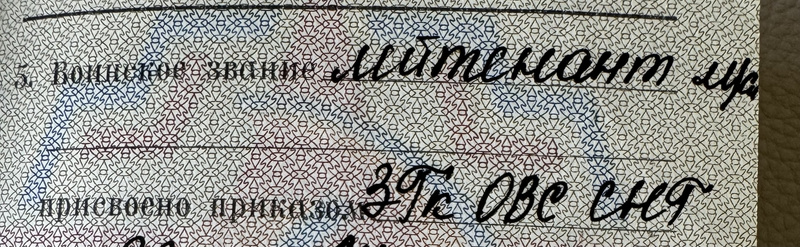 5. Воинское звание лейтенант
присвоено приказом ЗГк ОВС СНГ